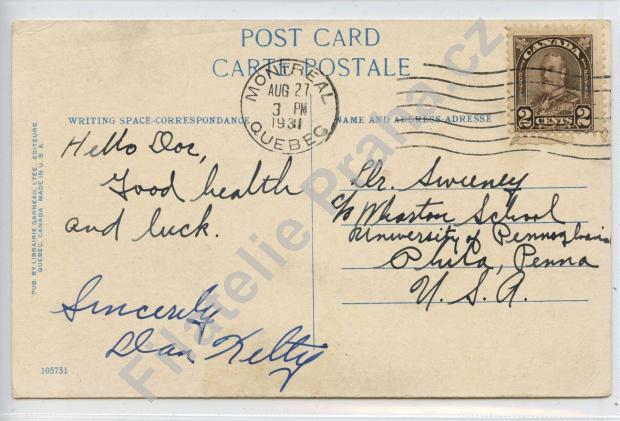 POST CARD
CARTE POSTALE
MONTREAL
AUG 27
3 PM
1931
QUEBEC
CANADA
2 CENTS 2
WRITING SPACE-CORRESPONDANCE
NAME AND ADDRESS-ADRESSE
Hello Doc,
Good health
and luck.
Sincerely
Dan Kelty
Dr. Sweeney
c/o Wharton School
University of Pennsylvania
Phila, Penna
U.S.A.
PUB. BY LIBRAIRIE GARNEAU, LTEE, EDITEURS.
QUEBEC, CANADA MADE IN U.S.A.
105751
Filatelie Praha.cz